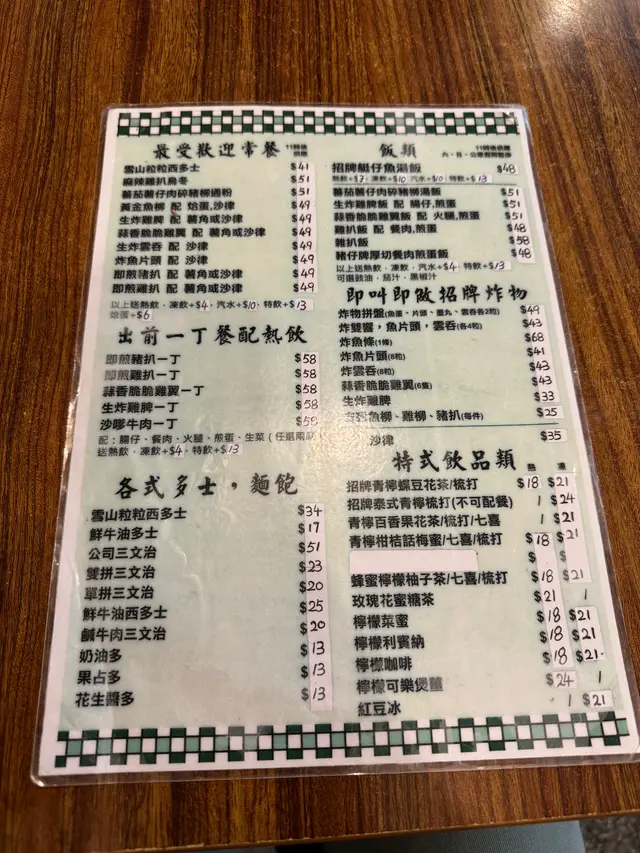 最受歡迎常餐 11時後供應
雪山粒粒西多士 $41
麻辣雞扒烏冬 $51
蕃茄薯仔肉碎豬柳通粉 $51
黃金魚柳 配 烚蛋,沙律 $49
生炸雞髀 配 薯角或沙律 $49
蒜香脆脆雞翼 配 薯角或沙律 $49
生炸雲吞 配 沙律 $49
炸魚片頭 配 沙律 $49
即煎豬扒 配 薯角或沙律 $51
即煎雞扒 配 薯角或沙律 $51
以上送熱飲﹐凍飲+$4﹐汽水+$10﹐特飲+$13
烚蛋+$6
出前一丁餐配熱飲
即煎豬扒一丁 $58
即煎雞扒一丁 $58
蒜香脆脆雞翼一丁 $58
生炸雞髀一丁 $58
沙嗲牛肉一丁 $58
配：腸仔、餐肉、火腿、煎蛋、生菜（任選兩
送熱飲﹐凍飲+$4﹐特飲+$13
各式多士，麵飽
雪山粒粒西多士 $34
鮮牛油多士 $17
公司三文治 $51
雙拼三文治 $23
單拼三文治 $20
鮮牛油西多士 $25
鹹牛肉三文治 $20
奶油多 $13
果占多 $13
花生醬多 $13
飯類 11時後供應
六、日、公眾假期暫停
招牌艇仔魚湯飯 $48
熱飲+$7﹐凍飲+$10﹐汽水+$10﹐特飲+$13
蕃茄薯仔肉碎豬柳湯飯 $51
生炸雞髀飯 配 腸仔,煎蛋 $51
蒜香脆脆雞翼飯 配 火腿,煎蛋 $51
雞扒飯 配 餐肉,煎蛋 $48
雜扒飯 $58
豬仔牌厚切餐肉煎蛋飯 $48
以上送熱飲﹐凍飲﹐汽水+$4﹐特飲+$13
可選豉油﹐茄汁﹐黑椒汁
即叫即做招牌炸物
炸物拼盤(魚蛋、片頭、墨丸、雲吞各2粒) $49
炸雙響，魚片頭，雲吞(各4粒) $43
炸魚條(1條) $68
炸魚片頭(8粒) $41
炸雲吞(8粒) $43
蒜香脆脆雞翼(6隻) $43
生炸雞髀 $33
魚柳、雞柳、豬扒(每件) $25
沙律 $35
特式飲品類 熱 凍
招牌青檸蝶豆花茶/梳打 $18 $21
招牌泰式青檸梳打(不可配餐) / $24
青檸百香果花茶/梳打/七喜 / $21
青檸柑桔話梅蜜/七喜/梳打 $18 $21
$ $
蜂蜜檸檬柚子茶/七喜/梳打 $18 $21
玫瑰花蜜糖茶 $21 /
檸檬菜蜜 $18 $21
檸檬利賓納 $18 $21
檸檬咖啡 $18 $21
檸檬可樂煲薑 $24 /
紅豆冰 / $21